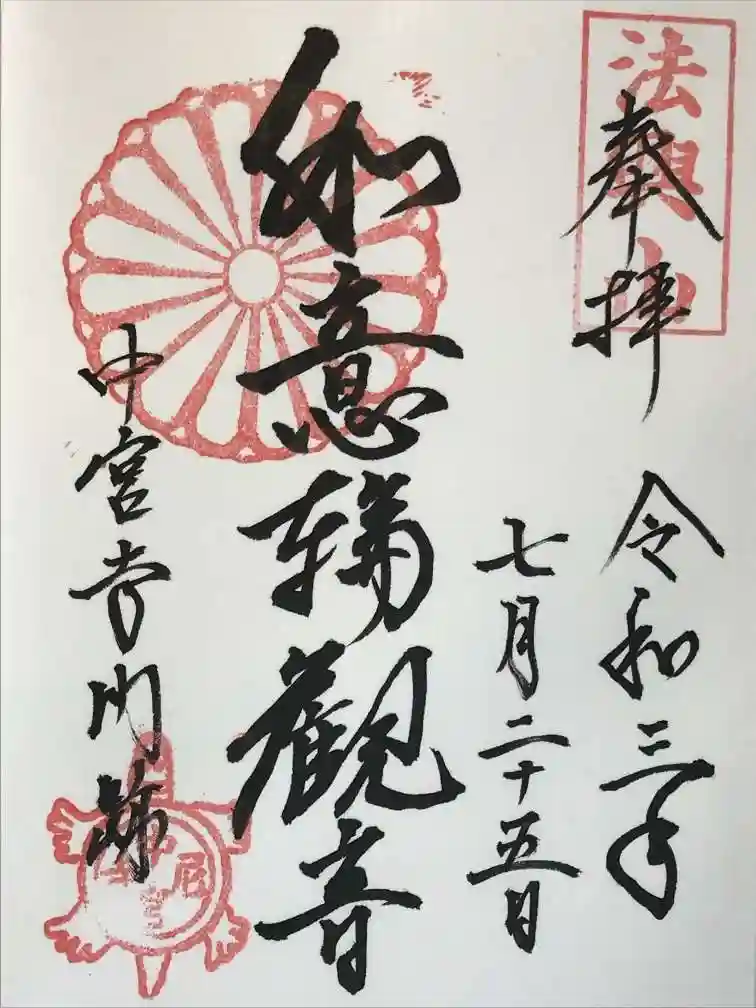 奉拝
法興山
令和三年
七月二十五日
如意輪観音
中宮寺門跡